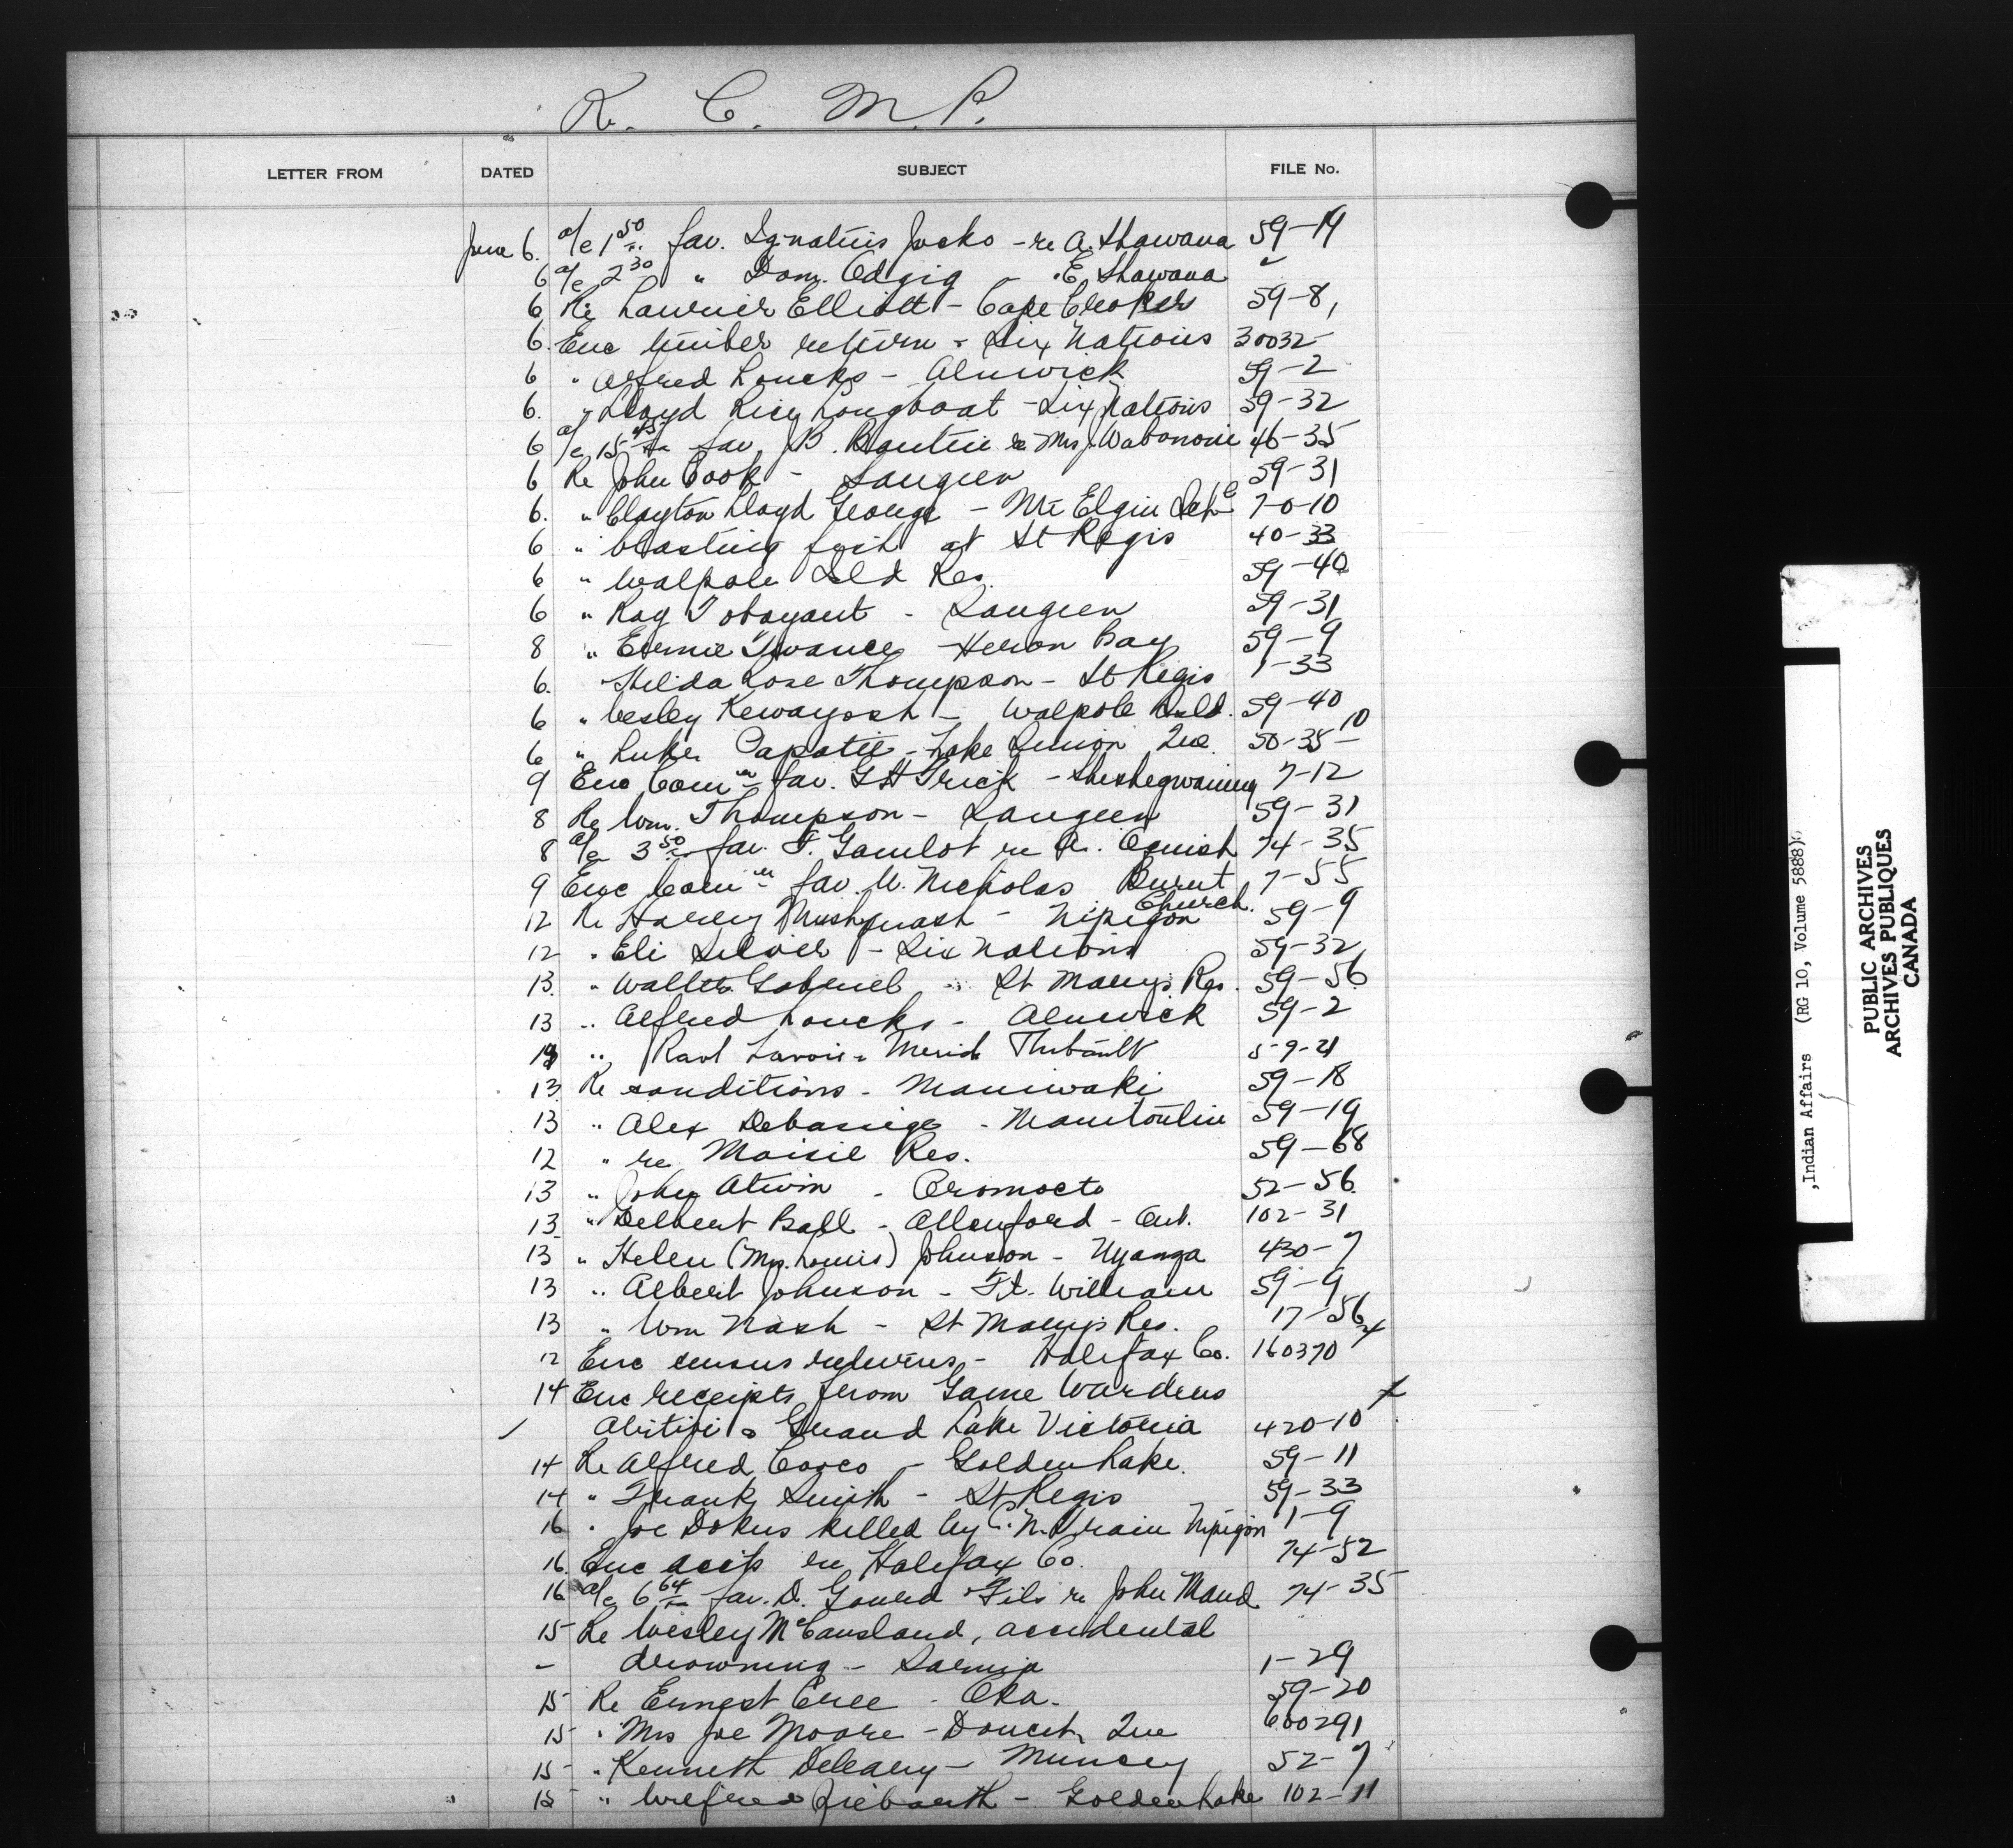 R. C. M. P.
LETTER FROM DATED SUBJECT FILE No.
June 6. a/c 1 50 fav. Ignatius Jocko - re A. Shawana 59-19
6 a/c 2 30 " Dom. Odjig - " E. Shawana "
6 Re Lawrier Elliott - Cape Croker 59-8,
6. Enc timber return - Six Nations 30032-
6 " Alfred Loucks - Alnwick 59-2
6. " Lloyd Longboat - Six Nations 59-32
6 a/c 15 45 fav. B. re Mrs J. Wabononie 46-35
6 Re John Cook - Saugeen 59-31
6. " Clayton Lloyd George - Mt Elgin Sch 7-0-10
6 " blasting fish at St Regis 40-33
6 " Walpole Isld Res. 59-40
6 " Ray Tobayant - Saugeen 59-31
8 " Ernie Twance - Heron Bay 59-9
6. Hilda Rose Thompson - St Regis 1-33
6 " Wesley Kewayosh - Walpole Isld. 59-40
6 " Luke Capatie - Lake Simon Que. 50-35-10
9 Enc Com'n fav. G H Trick - Sheshegwaning 7-12
8 Re Wm. Thompson - Saugeen 59-31
8 a/c 3 50 fav. F. re A. 74-35
9 Enc Com'n fav. W. Nicholas Burnt Church. 7-55
12 Re Harvey Mushquash - Nipigon 59-9
12 " Eli Silver - Six Nations 59-32
13. " Walter Gabriel - St Marys Res. 59-56
13 " Alfred Loucks - Alnwick 59-2
" Raol Lavoie - Thibault 59-21
13 Re conditions - Maniwaki 59-18
13 " Alex Debassige - Manitoulin 59-19
12 " re Moisie Res. 59-68
13 " John Atwin - Oromocto 52-56
13 " Delbert Ball - Allenford - Ont. 102-31
13 " Helen (Mrs. Louis) Johnson - Nyanza 430-7
13 " Albert Johnson - Ft. William 59-9
13 " Wm Nash - St Marys Res. 17-56
12 Enc census returns - Halifax Co. 160370 x
14 Enc receipts from Game Wardens
Abitibi & Grand Lake Victoria 420-10 x
14 Re Alfred Cooco - Golden Lake. 59-11
14 " Frank Smith - St Regis 59-33
16 " Joe Dokus killed by C.N. train Nipigon 1-9
16. Enc accts re Halifax Co. 74-52
16 a/c 6 64 fav. D. Gould & Fils re John Maud 74-35
15 Re Wesley McCausland, accidental
- drowning - Sarnia 1-29
15 Re Ernest Cree - Oka. 59-20
15 " Mrs Joe Moore - Doucet, Que 600291
15 - " Kenneth Deleary - Muncey 52-7
15 " Wilfred Ziebarth - Golden Lake 102-11
,Indian Affairs (RG 10, Volume 5888)
PUBLIC ARCHIVES
ARCHIVES PUBLIQUES
CANADA